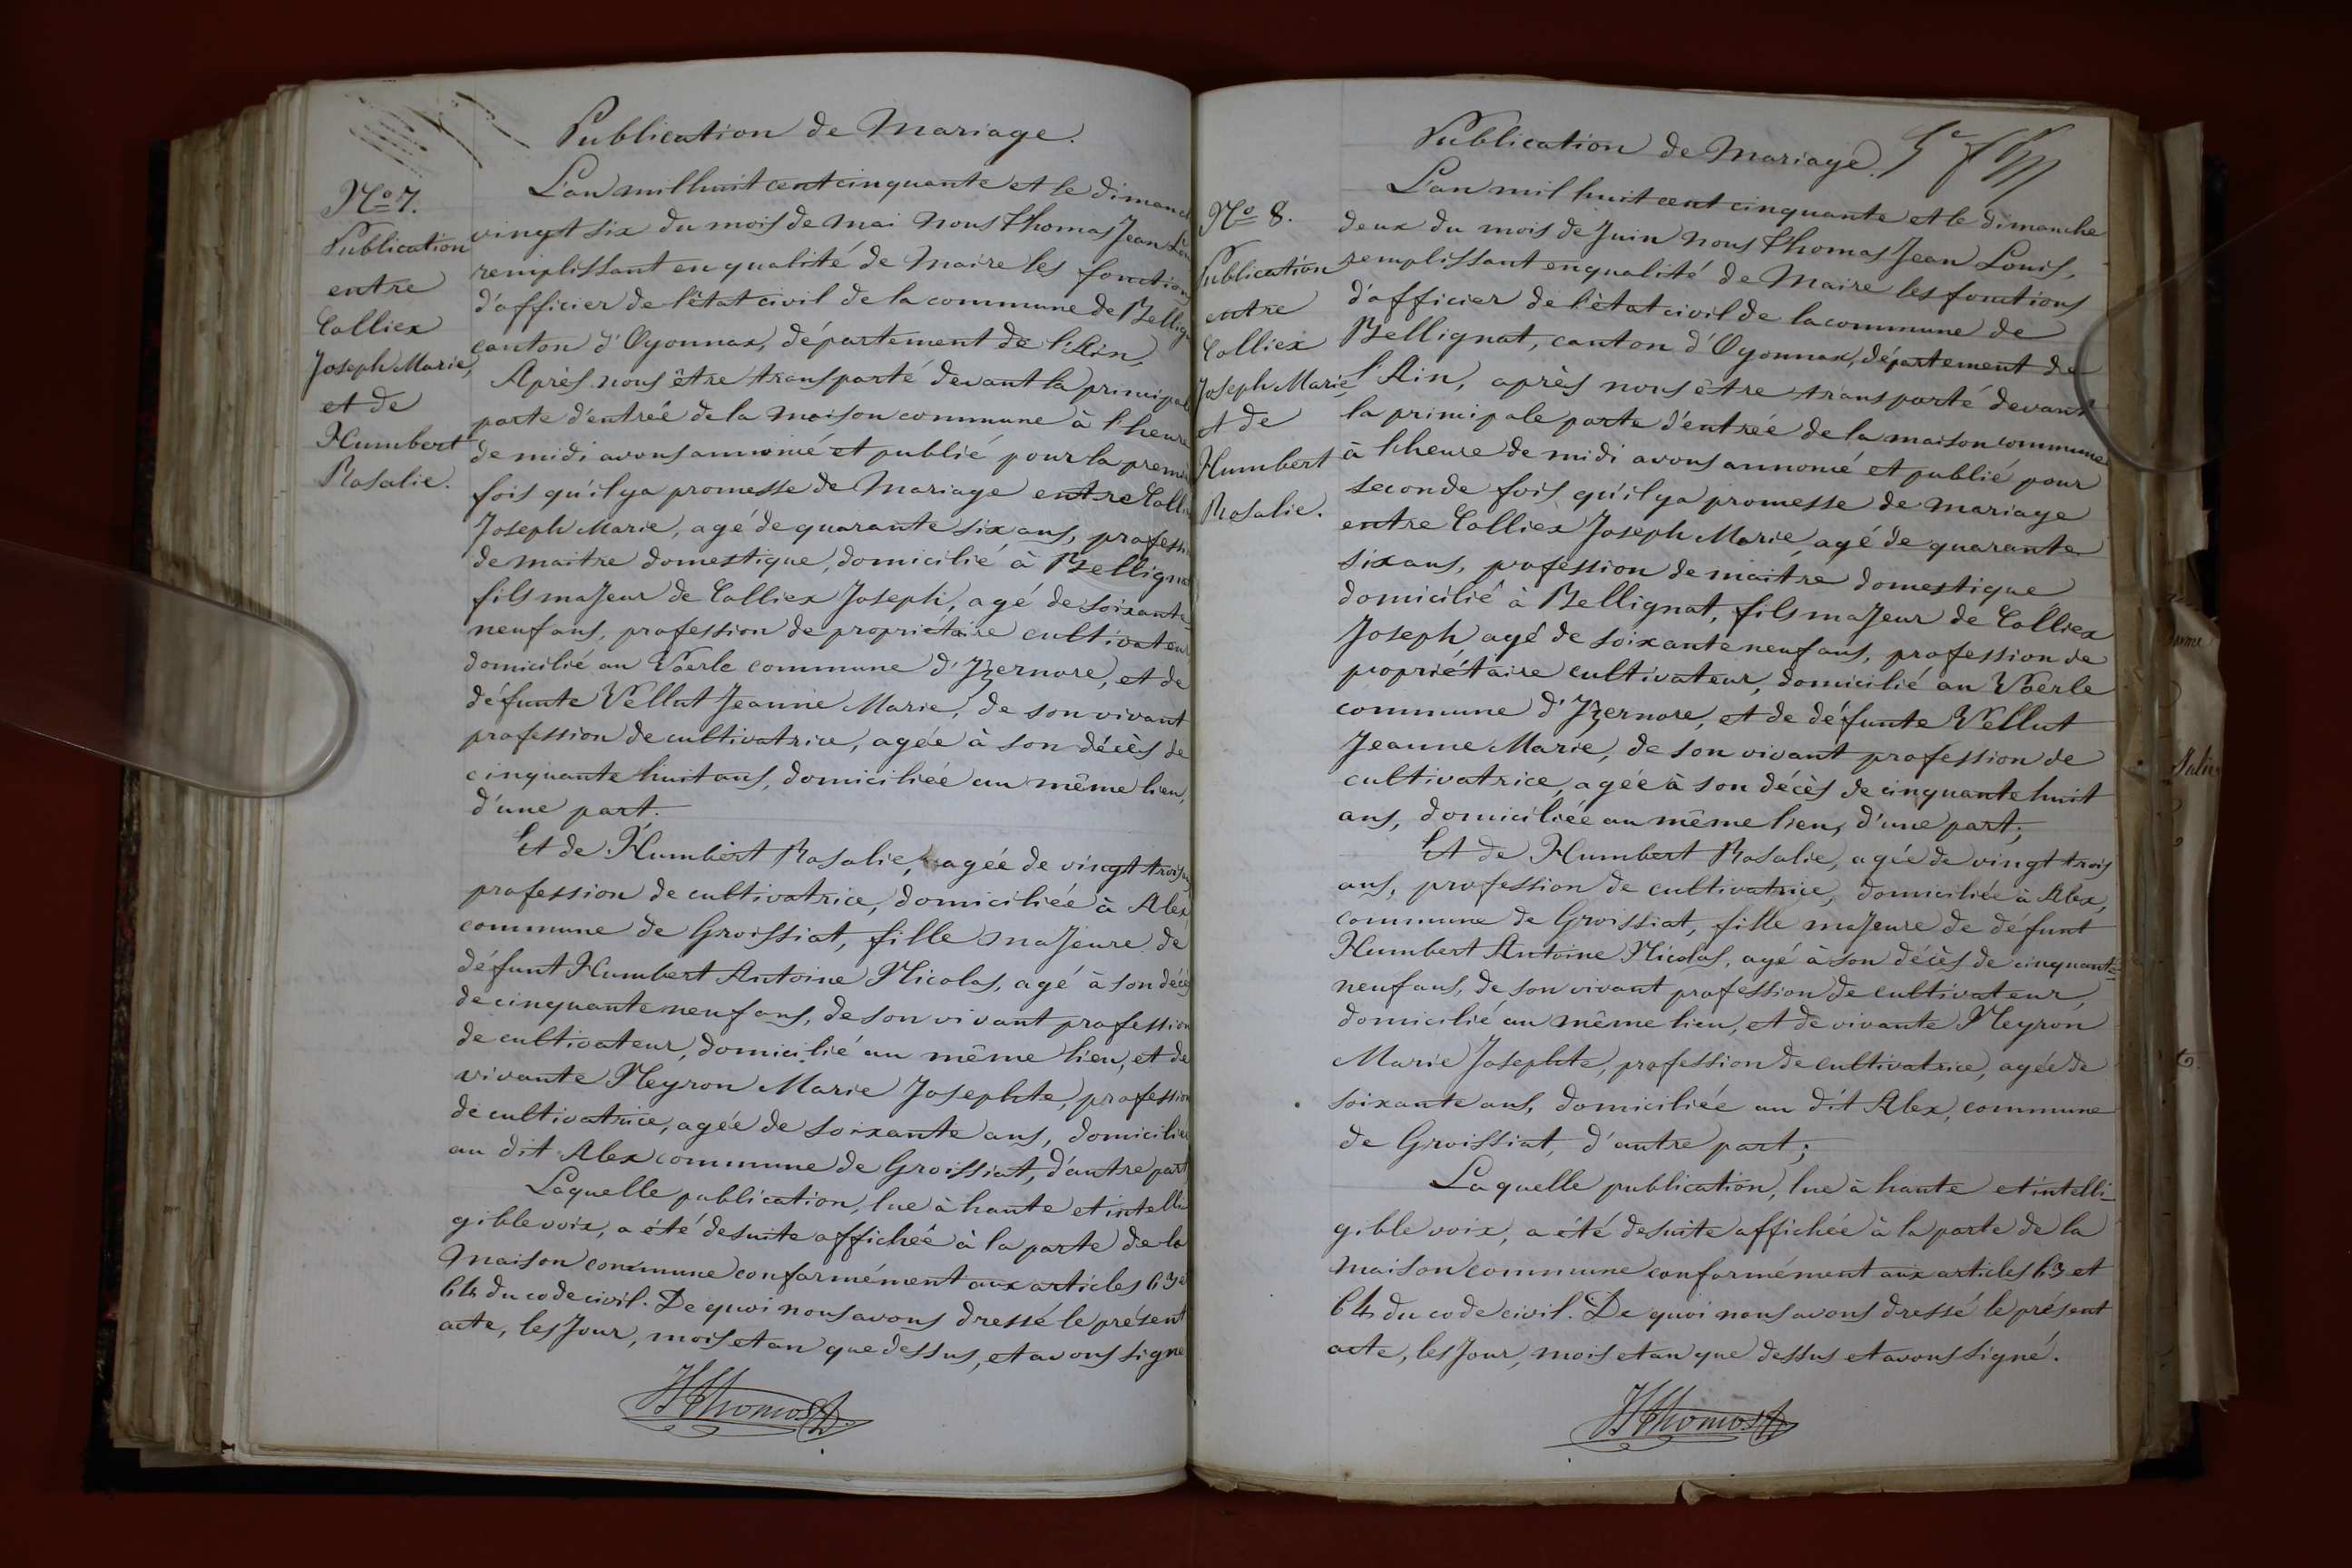 Publication de Mariage.
No 7.
Publication
entre
Colliex
Joseph Marie,
et de
Humbert
Rosalie.
L'an mil huit cent cinquante et le dimanch
vingt six du mois de mai nous Thomas Jean
remplissant en qualité de Maire les fonction
d'officier de l'état civil de la commune de Bellign
canton d'Oyonnax, département de l'Ain,
Après nous être transporté devant la principal
porte d'entrée de la maison commune à l'heure
de midi avons annoncé et publié pour la premi
fois qu'il y a promesse de Mariage entre Colli
Joseph Marie, agé de quarante six ans, professi
de maitre domestique, domicilié à Bellignat
fils majeur de Colliex Joseph, agé de soixante
neuf ans, profession de propriétaire cultivateur
domicilié au Voerle commune d'Izernore, et de
défunte Vellut Jeanne Marie, de son vivant
profession de cultivatrice, agée à son décès de
cinquante huit ans, domiciliée au même lieu,
d'une part.
Et de Humbert Rosalie, agée de vingt trois
profession de cultivatrice, domiciliée à Alex
commune de Groissiat, fille majeure de
défunt Humbert Antoine Nicolas, agé à son décès
de cinquante neuf ans, de son vivant profession
de cultivateur, domicilié au même lieu, et de
vivante Neyron Marie Josephte, profession
de cultivatrice, agée de soixante ans, domicilié
au dit Alex commune de Groissiat, d'autre part
Laquelle publication, lue à haute et intelli
gible voix, a été desuite affichée à la porte de la
maison commune conformément aux articles 63 et
64 du code civil. De quoi nous avons dressé le présent
acte, les jour, mois et an que dessus, et avons signé
JLThomas
Publication de Mariage.
No 8.
Publication
entre
Colliex
Joseph Marie,
et de
Humbert
Rosalie.
L'an mil huit cent cinquante et le dimanche
deux du mois de Juin nous Thomas Jean Louis,
remplissant en qualité de Maire les fonctions
d'officier de l'état civil de la commune de
Bellignat, canton d'Oyonnax, département de
l'Ain, après nous être transporté devant
la principale porte d'entrée de la maison commune
à l'heure de midi avons annoncé et publié pour
seconde fois qu'il y a promesse de mariage
entre Colliex Joseph Marie, agé de quarante
six ans, profession de maitre domestique
domicilié à Bellignat, fils majeur de Colliex
Joseph agé de soixante neuf ans, profession de
propriétaire cultivateur, domicilié au Voerle
commune d'Izernore, et de défunte Vellut
Jeanne Marie, de son vivant profession de
cultivatrice, agée à son décès de cinquante huit
ans, domiciliée au même lieu, d'une part;
Et de Humbert Rosalie, agée de vingt trois
ans, profession de cultivatrice, domiciliée à Alex,
commune de Groissiat, fille majeure de défunt
Humbert Antoine Nicolas, agé à son décès de cinquante
neuf ans, de son vivant profession de cultivateur,
domicilié au même lieu, et de vivante Neyron
Marie Josephte, profession de cultivatrice, agée de
soixante ans, domiciliée au dit Alex, commune
de Groissiat, d'autre part;
Laquelle publication, lue à haute et intelli-
gible voix, a été desuite affichée à la porte de la
maison commune conformément aux articles 63 et
64 du code civil. De quoi nous avons dressé le présent
acte, les jour, mois et an que dessus et avons signé.
JLThomas